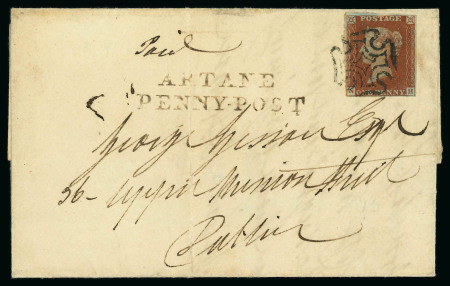 POSTAGE
ONE PENNY
Paid
ARTANE
PENNY-POST
George Esqr
56 Upper Street
Dublin